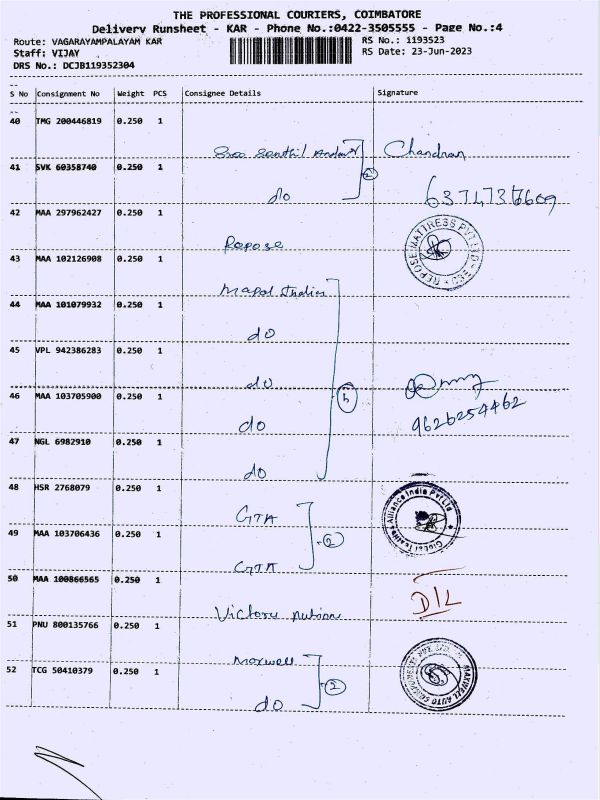 THE PROFESSIONAL COURIERS, COIMBATORE
Delivery Runsheet - KAR - Phone No.:0422-3505555 - Page No.:4
Route: VAGARAYAMPALAYAM KAR
RS No.: 1193523
Staff: VIJAY
RS Date: 23-Jun-2023
DRS No.: DCJB119352304
S No Consignment No Weight PCS Consignee Details Signature
40 TMG 200446819 0.250 1
Sree Senthil Chandran
41 SVK 60358740 0.250 1
2
do
42 MAA 297962427 0.250 1
Repose
REPOSE MATTRESS PVT LTD
43 MAA 102126908 0.250 1
44 MAA 101079932 0.250 1
do
45 VPL 942386283 0.250 1
do
46 MAA 103705900 0.250 1
do
9626254462
47 NGL 6982910 0.250 1
do
48 HSR 2768079 0.250 1
GTA
Global Textiles Alliance India Pvt Ltd
49 MAA 103706436 0.250 1
2
GTA
50 MAA 100866565 0.250 1
Victory
D/L
51 PNU 800135766 0.250 1
Maxwell
MAXWELL AUTO COMPONENTS PVT. LTD.
52 TCG 50410379 0.250 1
2
do